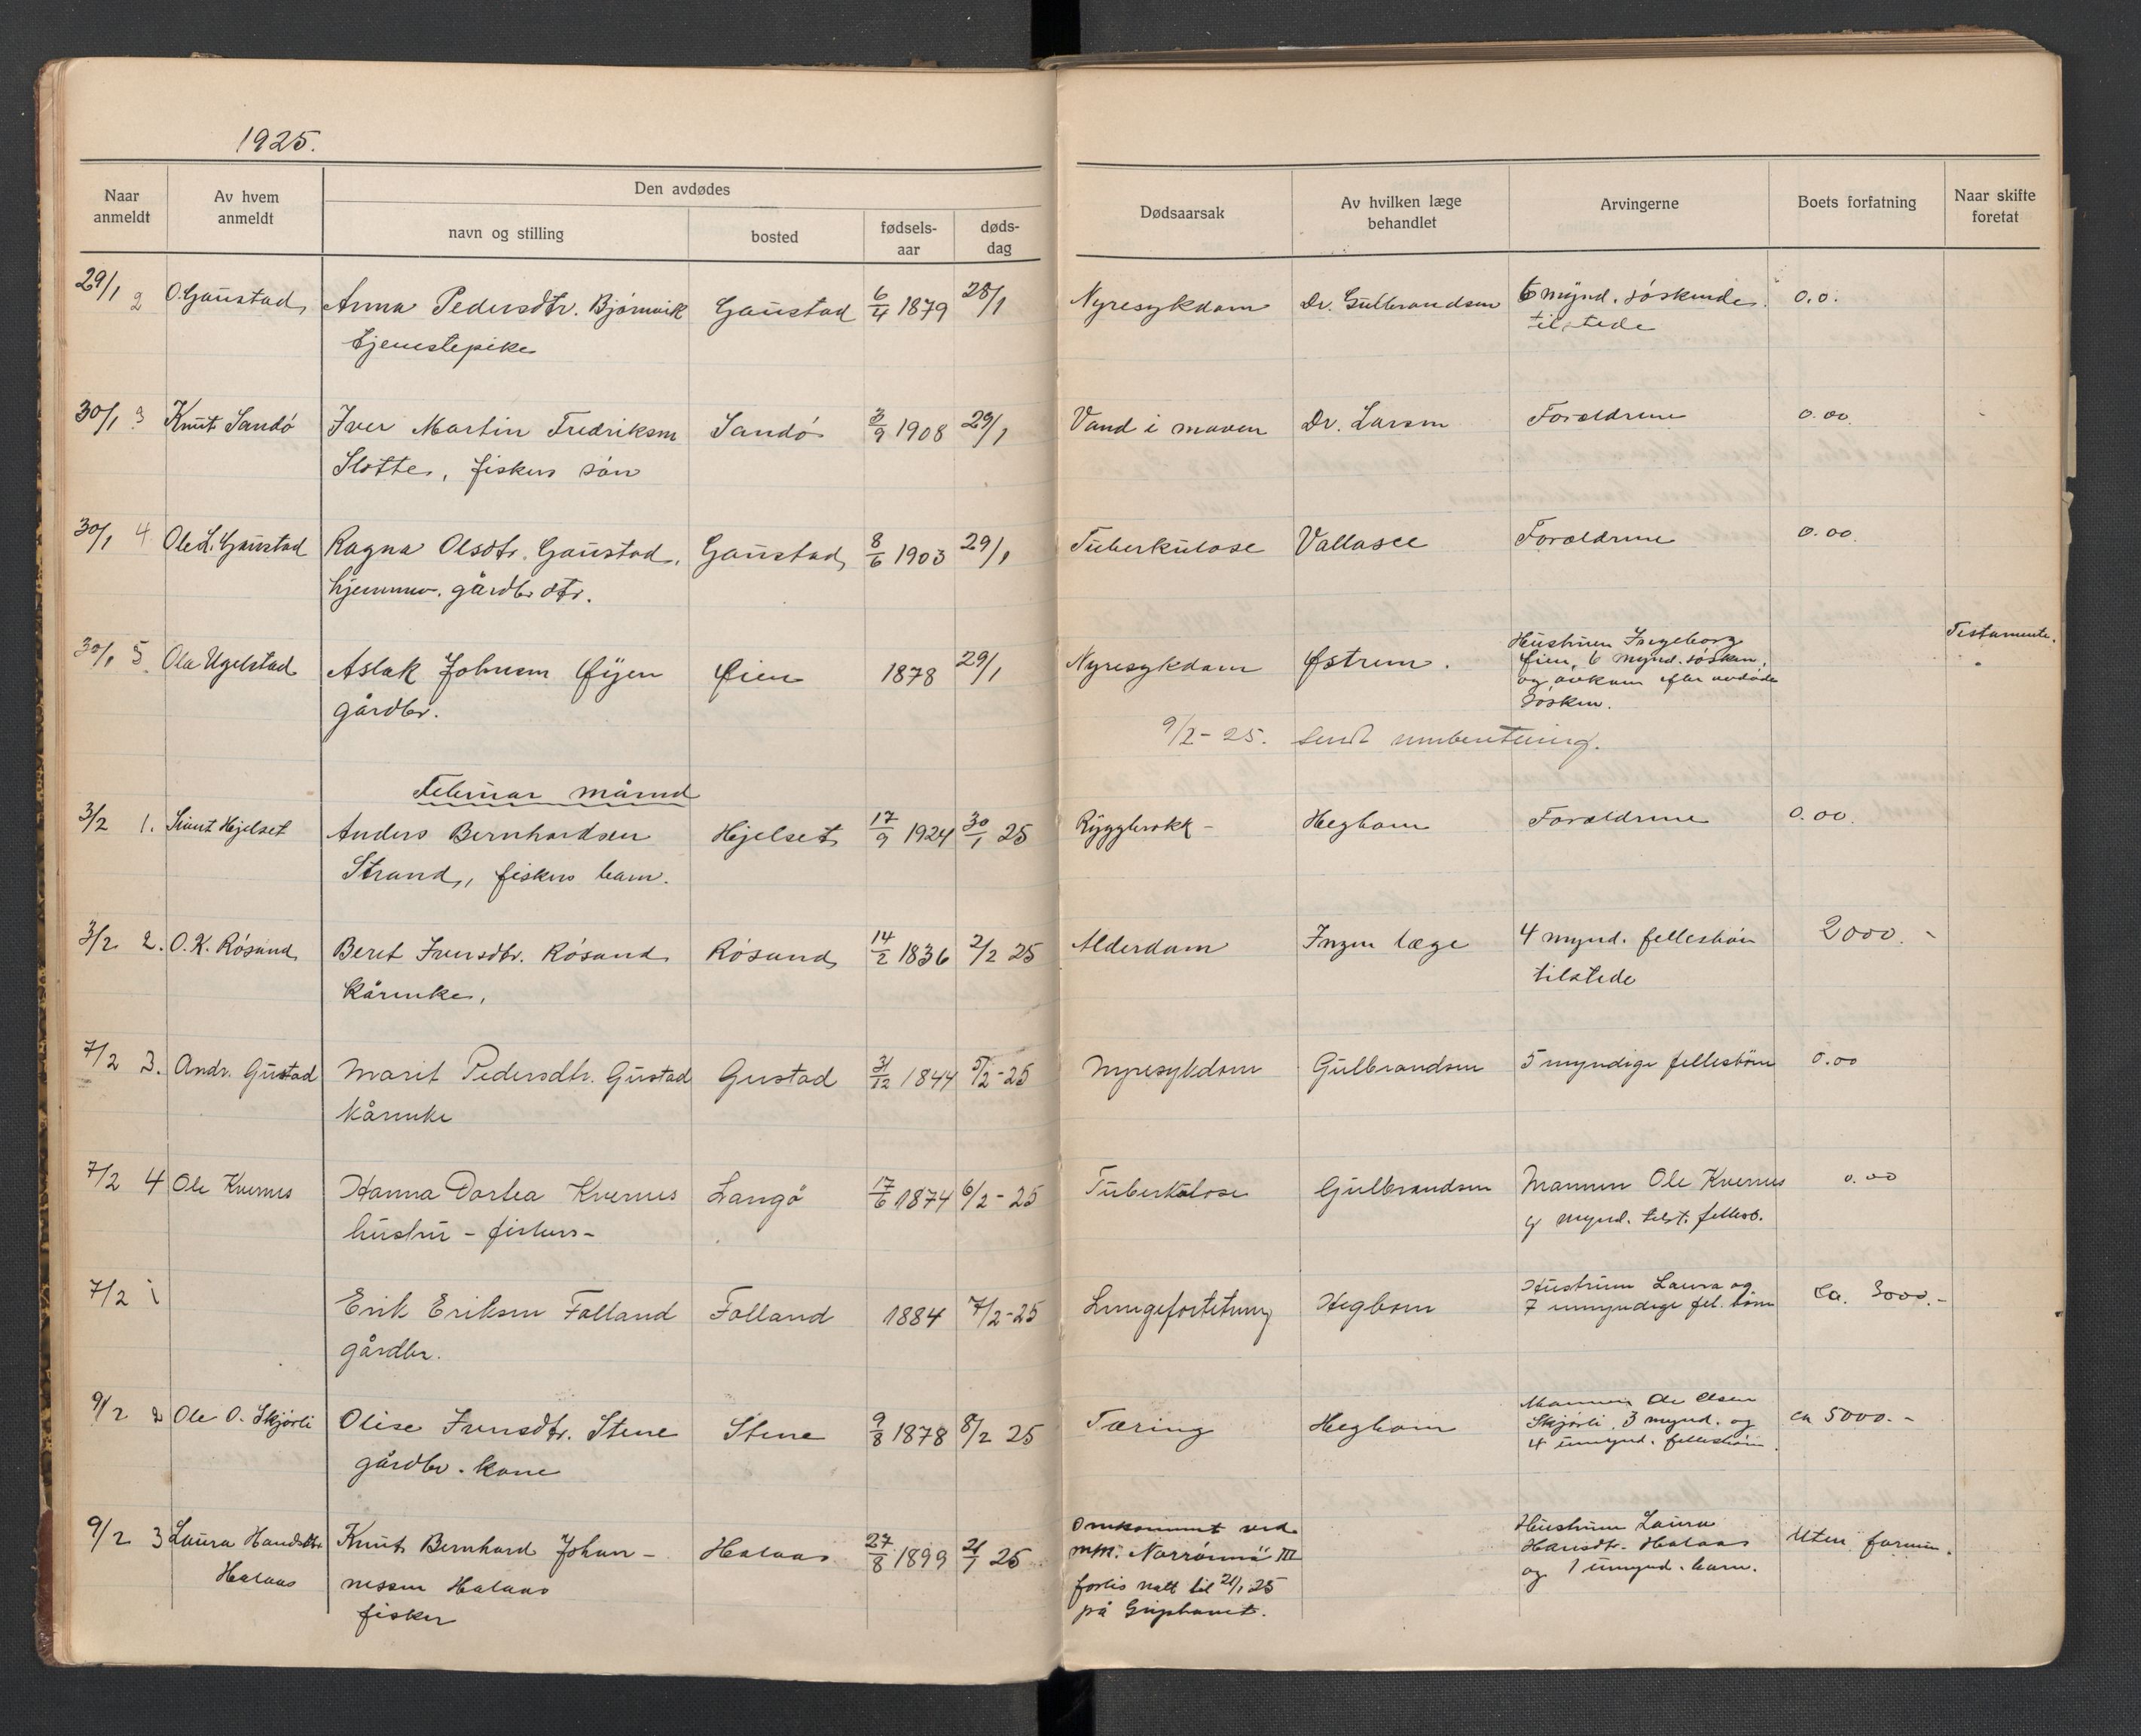 1925.
Naar anmeldt
Av hvem anmeldt
Den avdødes
navn og stilling
bosted
fødsels-aar
døds-dag
Dødsaarsak
Av hvilken læge behandlet
Arvingerne
Boets forfatning
Naar skifte foretat
29/1 2 O. Gaustad Anna Pedersdtr. Bjørnvik Gaustad 6/4 1879 28/1 Nyresykdom Dr. Gulbrandsen 6 mynd. søskende 0.0.
tjenestepike tilstede
30/1 3 Knut Sandö Iver Martin Fredriksen Sandö 3/9 1908 29/1 Vand i maven Dr. Larsen Forældrene 0.00.
Slotte, fiskers sön
30/1 4 Ole L. Gaustad Ragna Olsdtr. Gaustad, Gaustad 8/6 1903 29/1 Tuberkulose Vallasee Forældrene 0.00.
hjemmev. gårdbr dtr.
30/1 5 Ola Ugelstad Aslak Johnsen Øyen Øien 1878 29/1 Nyresykdom Østrem. Hustruen Ingeborg Testamente.
gårdbr. Øien, 6 mynd. søsken,
og avkom efter avdøde
søsken.
9/2-25. Sendt innberetning.
Februar måned
3/2 1. Sivert Hjelset Anders Bernhardsen Hjelset 17/9 1924 30/1 25 Ryggbrokk - Hegbom Forældrene 0.00.
Strand, fiskers barn.
3/2 2. O. K. Rösand Beret Iversdtr. Rösand Rösand 14/2 1836 2/2 25 Alderdom Ingen læge 4 mynd. fellesbörn 2000.-
kårenke, tilstede
7/2 3. Andr. Gustad Marit Pedersdtr. Gustad Gustad 31/12 1844 5/2-25 Nyresykdom Gulbrandsen 5 myndige fellesbörn 0.00
kårenke
7/2 4 Ole Kvernes Hanna Dortea Kvernes Langö 17/6 1874 6/2-25 Tuberkulose Gulbrandsen Mannen Ole Kvernes 0.00
hustru - fiskers - mynd. tilst. fellesb.
7/2 1 Erik Eriksen Folland Folland 1884 7/2-25 Lungefortetning Hegbom Hustruen Laura og ca. 3000.-
gårdbr. 7 umyndige fel. börn
9/2 2 Ole O. Skjörli Olise Iversdtr. Stene Stene 9/8 1878 8/2 25 Tæring Hegbom Mannen Ole Olsen ca 5000.-
gårdbr. kone Skjörli, 3 mynd. og
4 umynd. fellesbörn.
9/2 3 Laura Hansdtr. Knut Bernhard Johan- Halaas 27/8 1899 21/1 25 Omkommet ved Hustruen Laura Uten formue.
Halaas nessen Halaas m/k. "Norrönna" III Hansdtr. Halaas
fisker forlis natt til 21/1 25 og 1 umynd. barn.
på Griphavet.